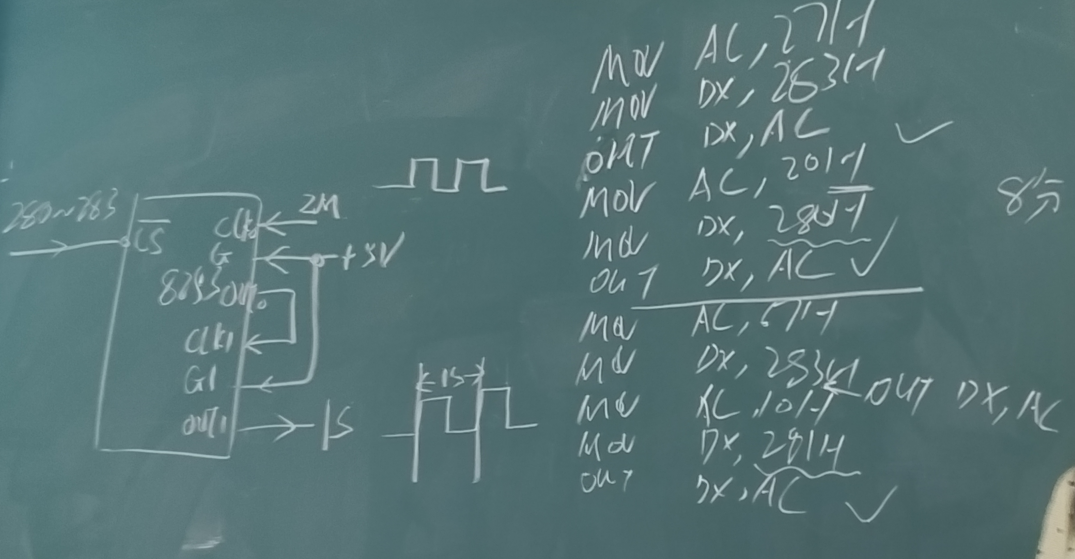 280~283
CS
8253
CLK0
2M
G
+5V
OUT0
CLK1
G1
OUT1
1S
1S
MOV AL, 27H
MOV DX, 283H
OUT DX, AL
MOV AL, 20H
MOV DX, 280H
OUT DX, AL
MOV AL, 67H
MOV DX, 283H
OUT DX, AL
MOV AL, 10H
MOV DX, 281H
OUT DX, AL
8分